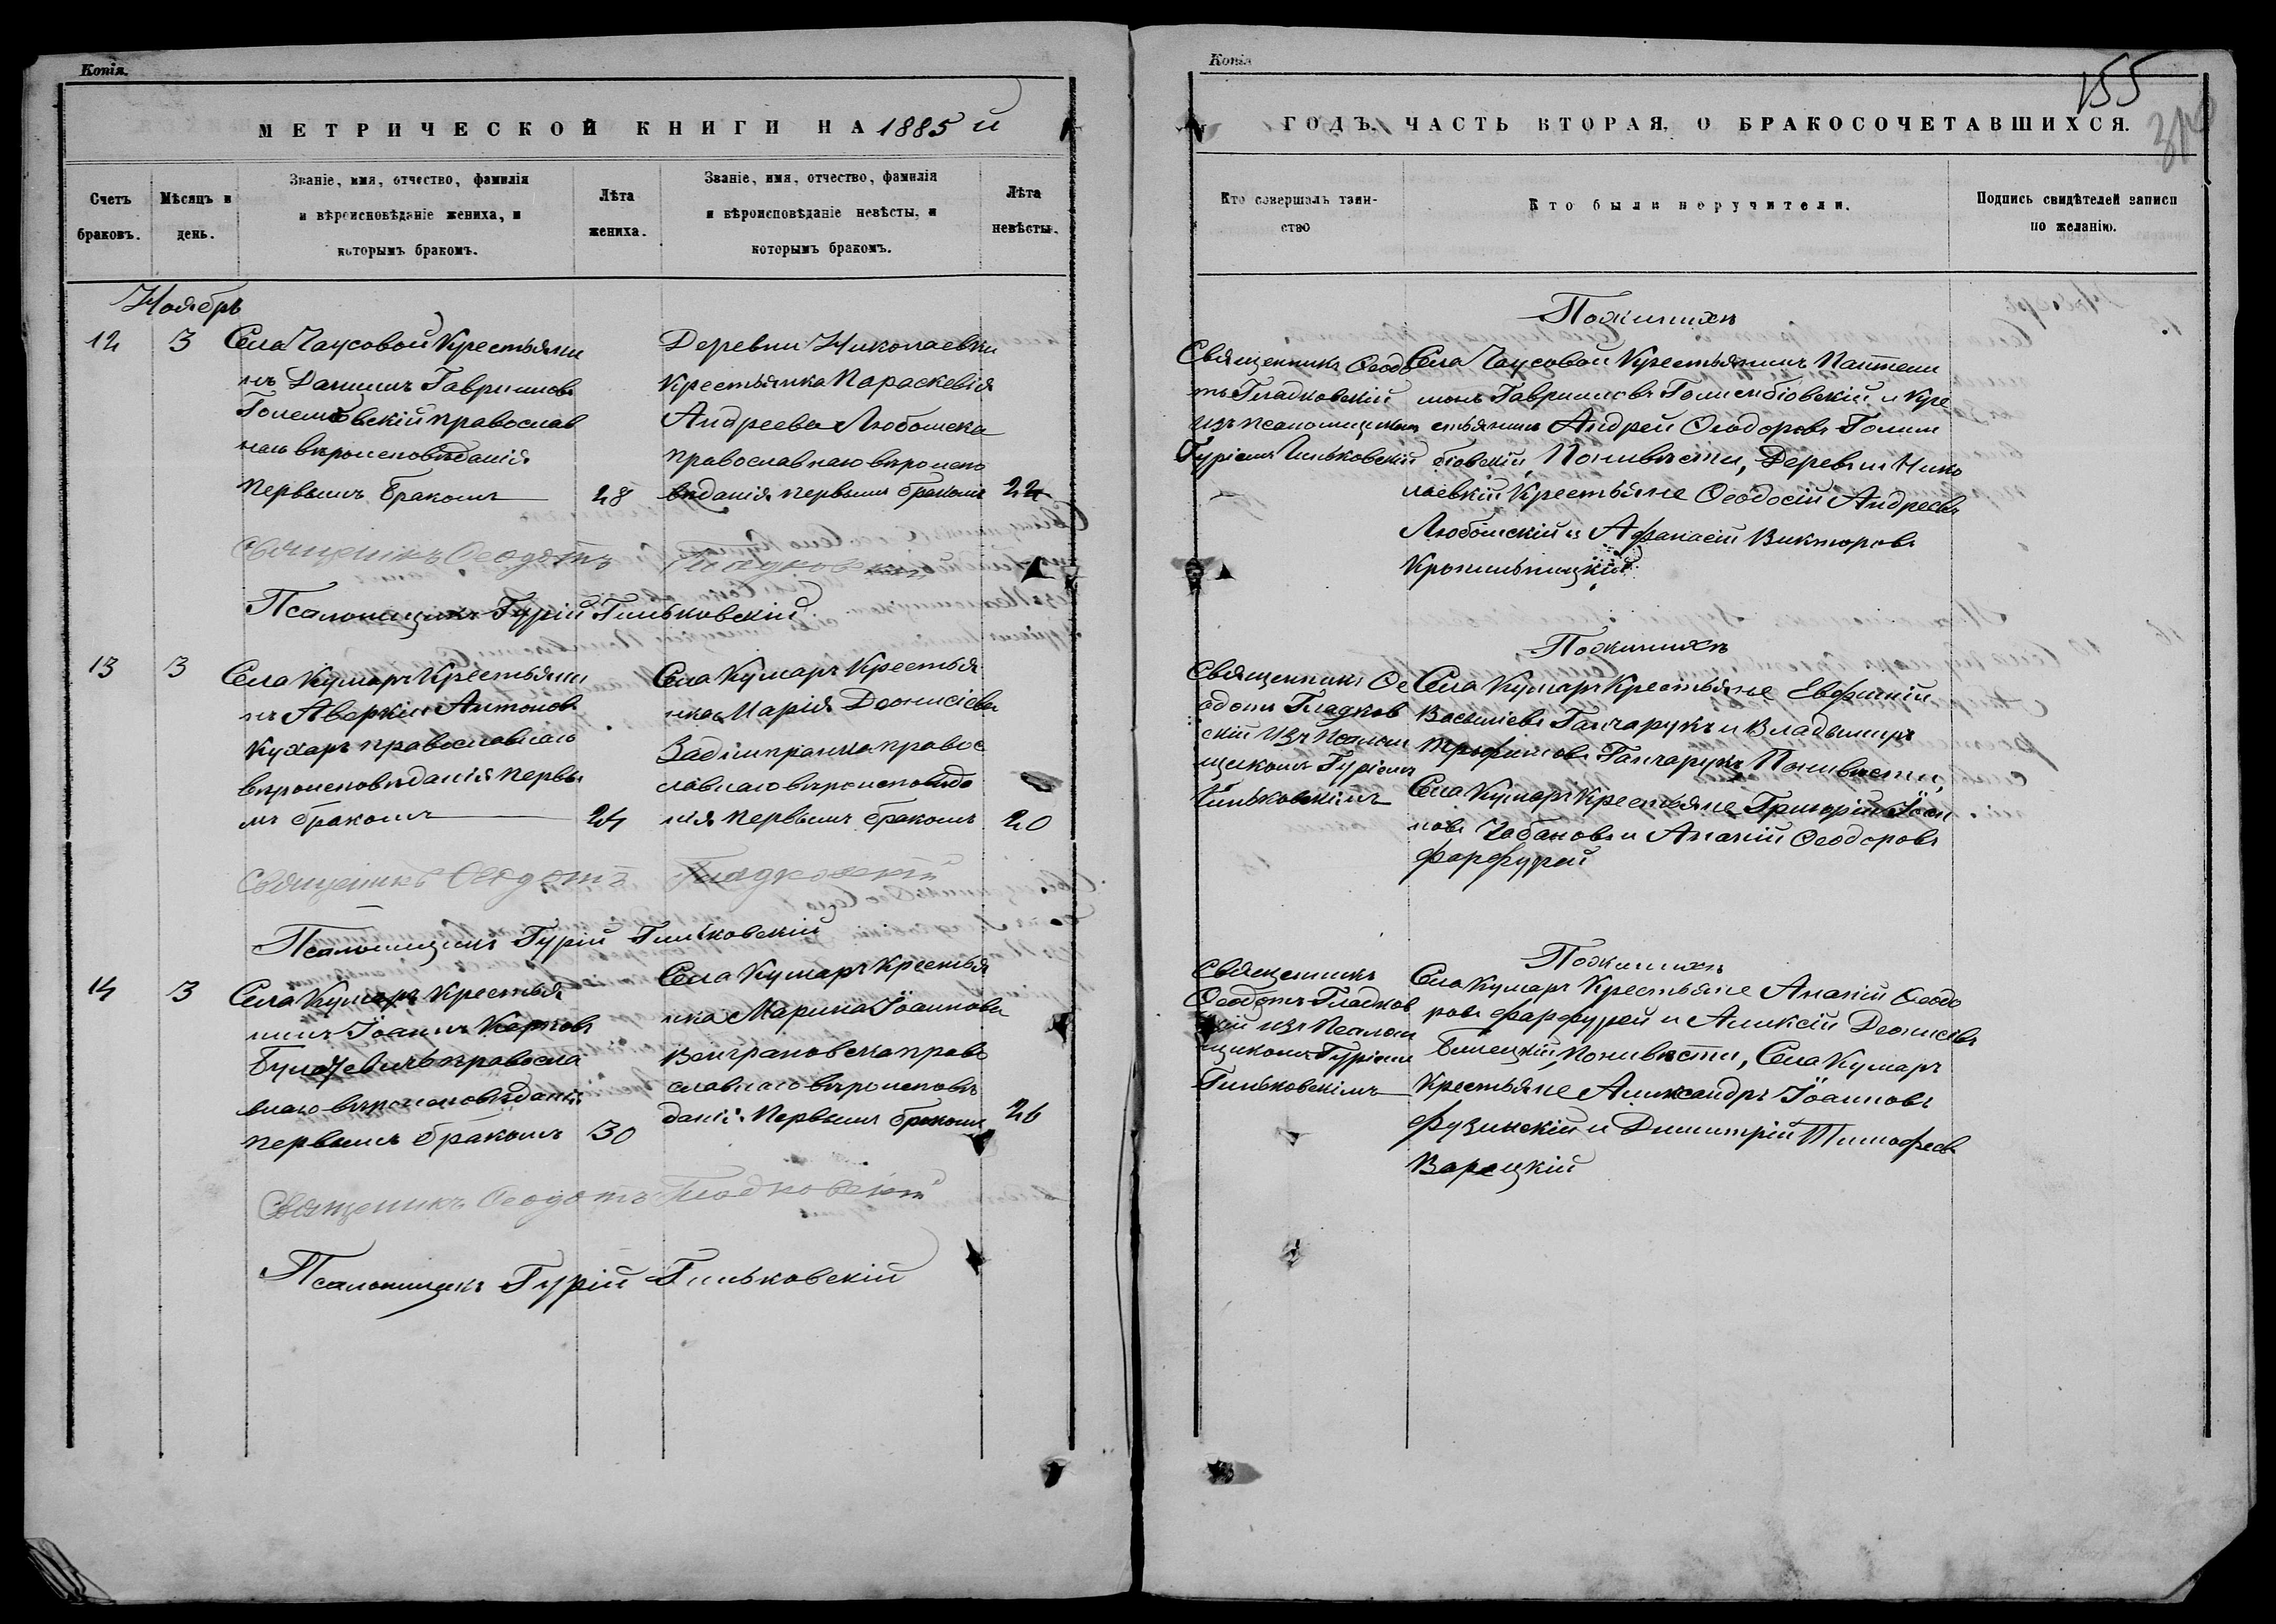 Копія.
МЕТРИЧЕСКОЙ КНИГИ НА 1885 й
Счетъ браковъ.
Мѣсяцъ и день.
Званіе, имя, отчество, фамилія
и вѣроисповѣданіе жениха, и
которымъ бракомъ.
Лѣта жениха.
Званіе, имя, отчество, фамилія
и вѣроисповѣданіе невѣсты, и
которымъ бракомъ.
Лѣта невѣсты.
Ноябръ
12
3
Села Чаусовой Крестьяни
нъ Даниилъ Гавриловъ
православ
наго вѣроисповѣданія
первымъ бракомъ
28
Деревни Николаевки
Крестьянка Параскевія
Андреева Любомска
православнаго вѣроиспо
вѣданія первымъ бракомъ
22
Священикъ Ѳеодотъ Гладковскій
Псаломщикъ Гурій Гиньковскій
13
3
Села Кумаръ Крестьяни
нъ Аверкій Антоновъ
Кухаръ православнаго
вѣроисповѣданія первы
мъ бракомъ
24
Села Кумаръ Крестья
нка Марія Деонисіева
правос
лавнаго вѣроисповѣда
нія первымъ бракомъ
20
Священикъ Ѳеодотъ Гладковскій
Псаломщикъ Гурій Гиньковскій
14
3
Села Кумаръ Крестья
нинъ Іоаннъ Карповъ
правосла
внаго вѣроисповѣданія
первымъ бракомъ
30
Села Кумаръ Крестья
нка Марина Іоаннова
Венграновска право
славнаго вѣроисповѣ
данія первымъ бракомъ
26
Священикъ Ѳеодотъ Гладковскій
Псаломщикъ Гурій Гиньковскій
Копія
155
ГОДЪ, ЧАСТЬ ВТОРАЯ, О БРАКОСОЧЕТАВШИХСЯ.
Кто совершалъ таин-
ство
Кто были поручители.
Подпись свидѣтелей записи
по желанію.
Священникъ Ѳеодо
тъ Гладковскій
изъ псаломщикомъ
Гуріемъ Гиньковскій
Пожинихъ
Села Чаусовой Крестьянинъ Пантели
монъ Гавриловъ и Кре
стьянинъ Андрей Ѳеодоровъ
Поневѣсти, Деревни Нико
лаевки Крестьяне Ѳеодосій Андреевъ
Любомскій и Афанасій Викторовъ
Кропильницкій
Священникъ Ѳе
одотъ Гладков
скій изъ псалом
щикомъ Гуріемъ
Гиньковскимъ
Пожинихъ
Села Кумаръ Крестьяне Евфимій
Василіевъ Ганчарукъ и Владымиръ
Трофимовъ Ганчарукъ Поневѣсти,
Села Кумаръ Крестьяне Григорій Іоан
новъ Чабановъ и Ананій Ѳеодоровъ
Фарфурей
Священникъ
Ѳеодотъ Гладков
скій изъ псалом
щикомъ Гуріемъ
Гиньковскимъ
Пожинихъ
Села Кумаръ Крестьяне Ананій Ѳеодо
ровъ Фарфурей и Аликсій Деонисіевъ
Билецкій, Поневѣсти, Села Кумаръ
Крестьяне Александръ Іоанновъ
Фузинскій и Димитрій Тимофеевъ
Варецкій